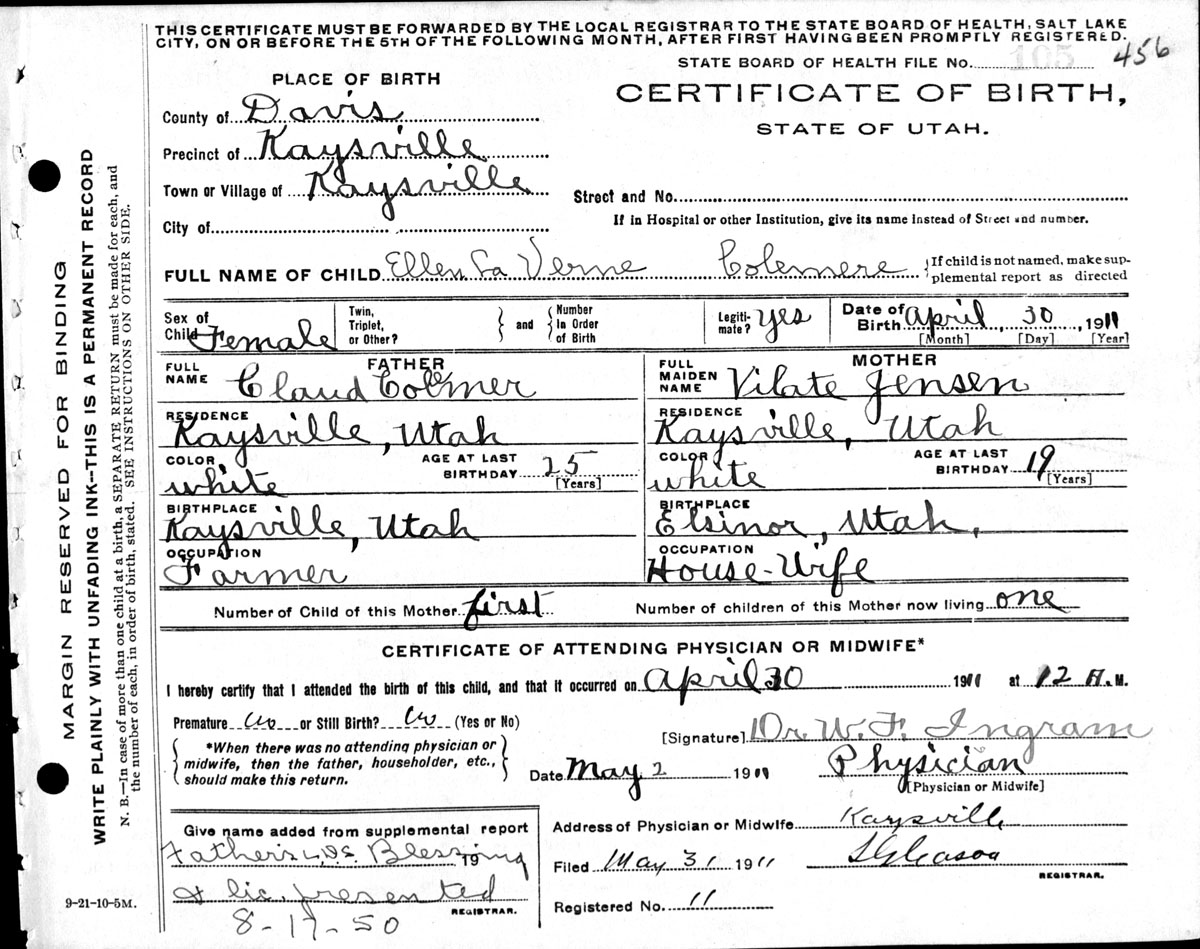 THIS CERTIFICATE MUST BE FORWARDED BY THE LOCAL REGISTRAR TO THE STATE BOARD OF HEALTH, SALT LAKE
CITY, ON OR BEFORE THE 5TH OF THE FOLLOWING MONTH, AFTER FIRST HAVING BEEN PROMPTLY REGISTERED.
STATE BOARD OF HEALTH FILE No. 105 456
PLACE OF BIRTH
CERTIFICATE OF BIRTH,
STATE OF UTAH.
County of Davis
Precinct of Kaysville
Town or Village of Kaysville
Street and No.
If in Hospital or other Institution, give its name instead of Street and number.
City of
FULL NAME OF CHILD Ellen La Verne Colemere {If child is not named, make sup-
plemental report as directed
Sex of Child Female
Twin, Triplet, or Other?
} and {
Number in Order of Birth
Legiti-mate? yes
Date of Birth April, 30, 1911
[Month] [Day] [Year]
FATHER
FULL NAME Claud Colmer
MOTHER
FULL MAIDEN NAME Vilate Jensen
RESIDENCE Kaysville, Utah
RESIDENCE Kaysville, Utah
COLOR white
AGE AT LAST BIRTHDAY 25 [Years]
COLOR white
AGE AT LAST BIRTHDAY 19 [Years]
BIRTHPLACE Kaysville, Utah
BIRTHPLACE Elsinor, Utah,
OCCUPATION Farmer
OCCUPATION House-Wife
Number of Child of this Mother first
Number of children of this Mother now living one
CERTIFICATE OF ATTENDING PHYSICIAN OR MIDWIFE*
I hereby certify that I attended the birth of this child, and that it occurred on April 30 1911 at 12 A.M.
Premature or Still Birth? (Yes or No)
[Signature] Dr. W. F. Ingram
{*When there was no attending physician or
midwife, then the father, householder, etc.,
should make this return.}
Date May 2 1911
Physician
[Physician or Midwife]
Give name added from supplemental report
Father's Blessing 19
& lic. presented
REGISTRAR.
8-17-50
Address of Physician or Midwife Kaysville
Filed May 31 1911
Gleason
REGISTRAR.
Registered No. 11
9-21-10-5M.
MARGIN RESERVED FOR BINDING
WRITE PLAINLY WITH UNFADING INK--THIS IS A PERMANENT RECORD
N. B.—In case of more than one child at a birth, a SEPARATE RETURN must be made for each, and
the number of each, in order of birth, stated. SEE INSTRUCTIONS ON OTHER SIDE.